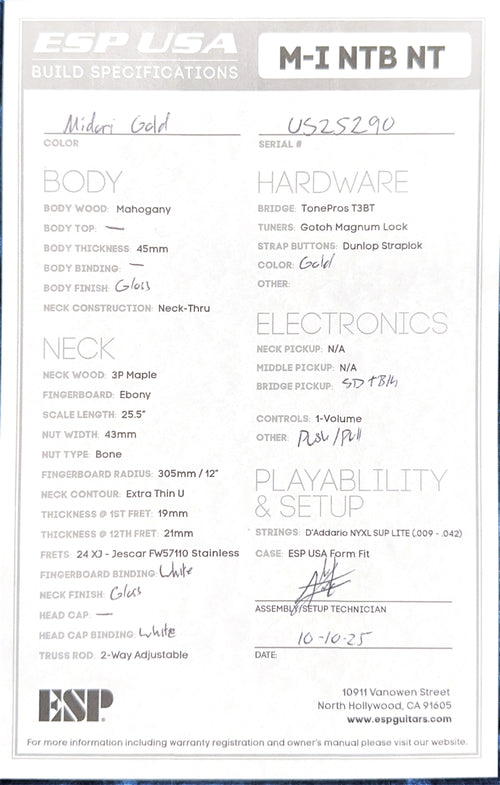 ESP USA
BUILD SPECIFICATIONS
M-I NTB NT
Midori Gold
COLOR
US25290
SERIAL #
BODY
BODY WOOD: Mahogany
BODY TOP: —
BODY THICKNESS: 45mm
BODY BINDING: —
BODY FINISH: Gloss
NECK CONSTRUCTION: Neck-Thru
NECK
NECK WOOD: 3P Maple
FINGERBOARD: Ebony
SCALE LENGTH: 25.5"
NUT WIDTH: 43mm
NUT TYPE: Bone
FINGERBOARD RADIUS: 305mm / 12"
NECK CONTOUR: Extra Thin U
THICKNESS @ 1ST FRET: 19mm
THICKNESS @ 12TH FRET: 21mm
FRETS: 24 XJ - Jescar FW57110 Stainless
FINGERBOARD BINDING: White
NECK FINISH: Gloss
HEAD CAP: —
HEAD CAP BINDING: White
TRUSS ROD: 2-Way Adjustable
HARDWARE
BRIDGE: TonePros T3BT
TUNERS: Gotoh Magnum Lock
STRAP BUTTONS: Dunlop Straplok
COLOR: Gold
OTHER:
ELECTRONICS
NECK PICKUP: N/A
MIDDLE PICKUP: N/A
BRIDGE PICKUP: SD TB14
CONTROLS: 1-Volume
OTHER: Push/Pull
PLAYABLILITY
& SETUP
STRINGS: D'Addario NYXL SUP LITE (.009 - .042)
CASE: ESP USA Form Fit
ASSEMBLY/SETUP TECHNICIAN
10-10-25
DATE:
ESP.
10911 Vanowen Street
North Hollywood, CA 91605
www.espguitars.com
For more information including warranty registration and owner's manual please visit our website.